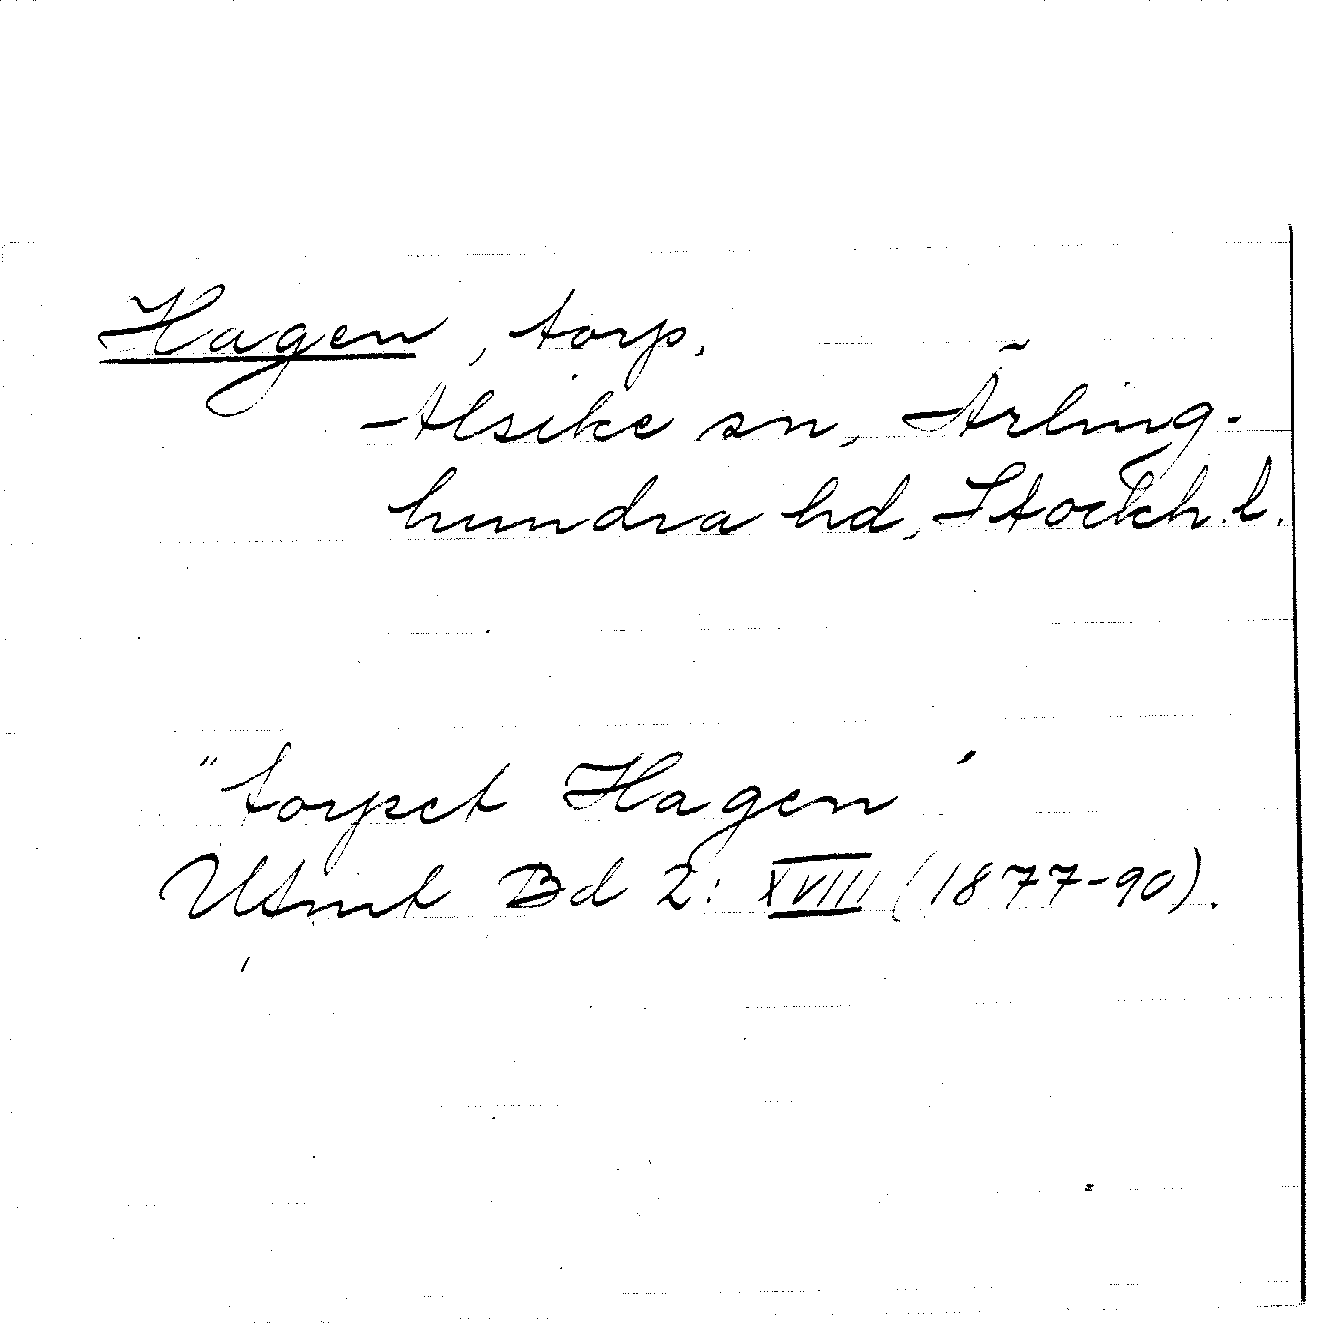 Hagen, torp,
Alsike sn, Ärling-
hundra hd, Stockh. l.
"torpet Hagen"
Utmt Bd 2: XVIII (1877-90).